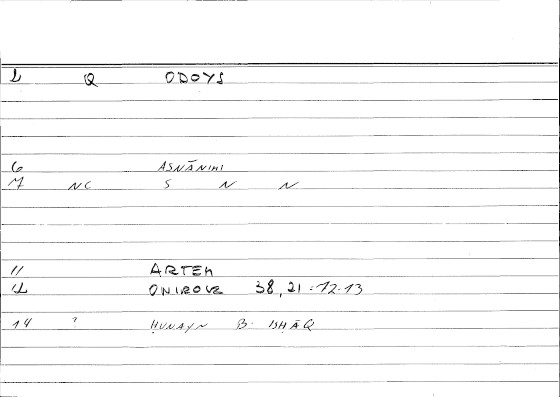 1 Q ODOYS
6 ASNĀNIHI
7 NC S N N
11 ARTEM
12 ONIROCR 38,21:12-13
14 ? ḤUNAYN B. ISḤĀQ